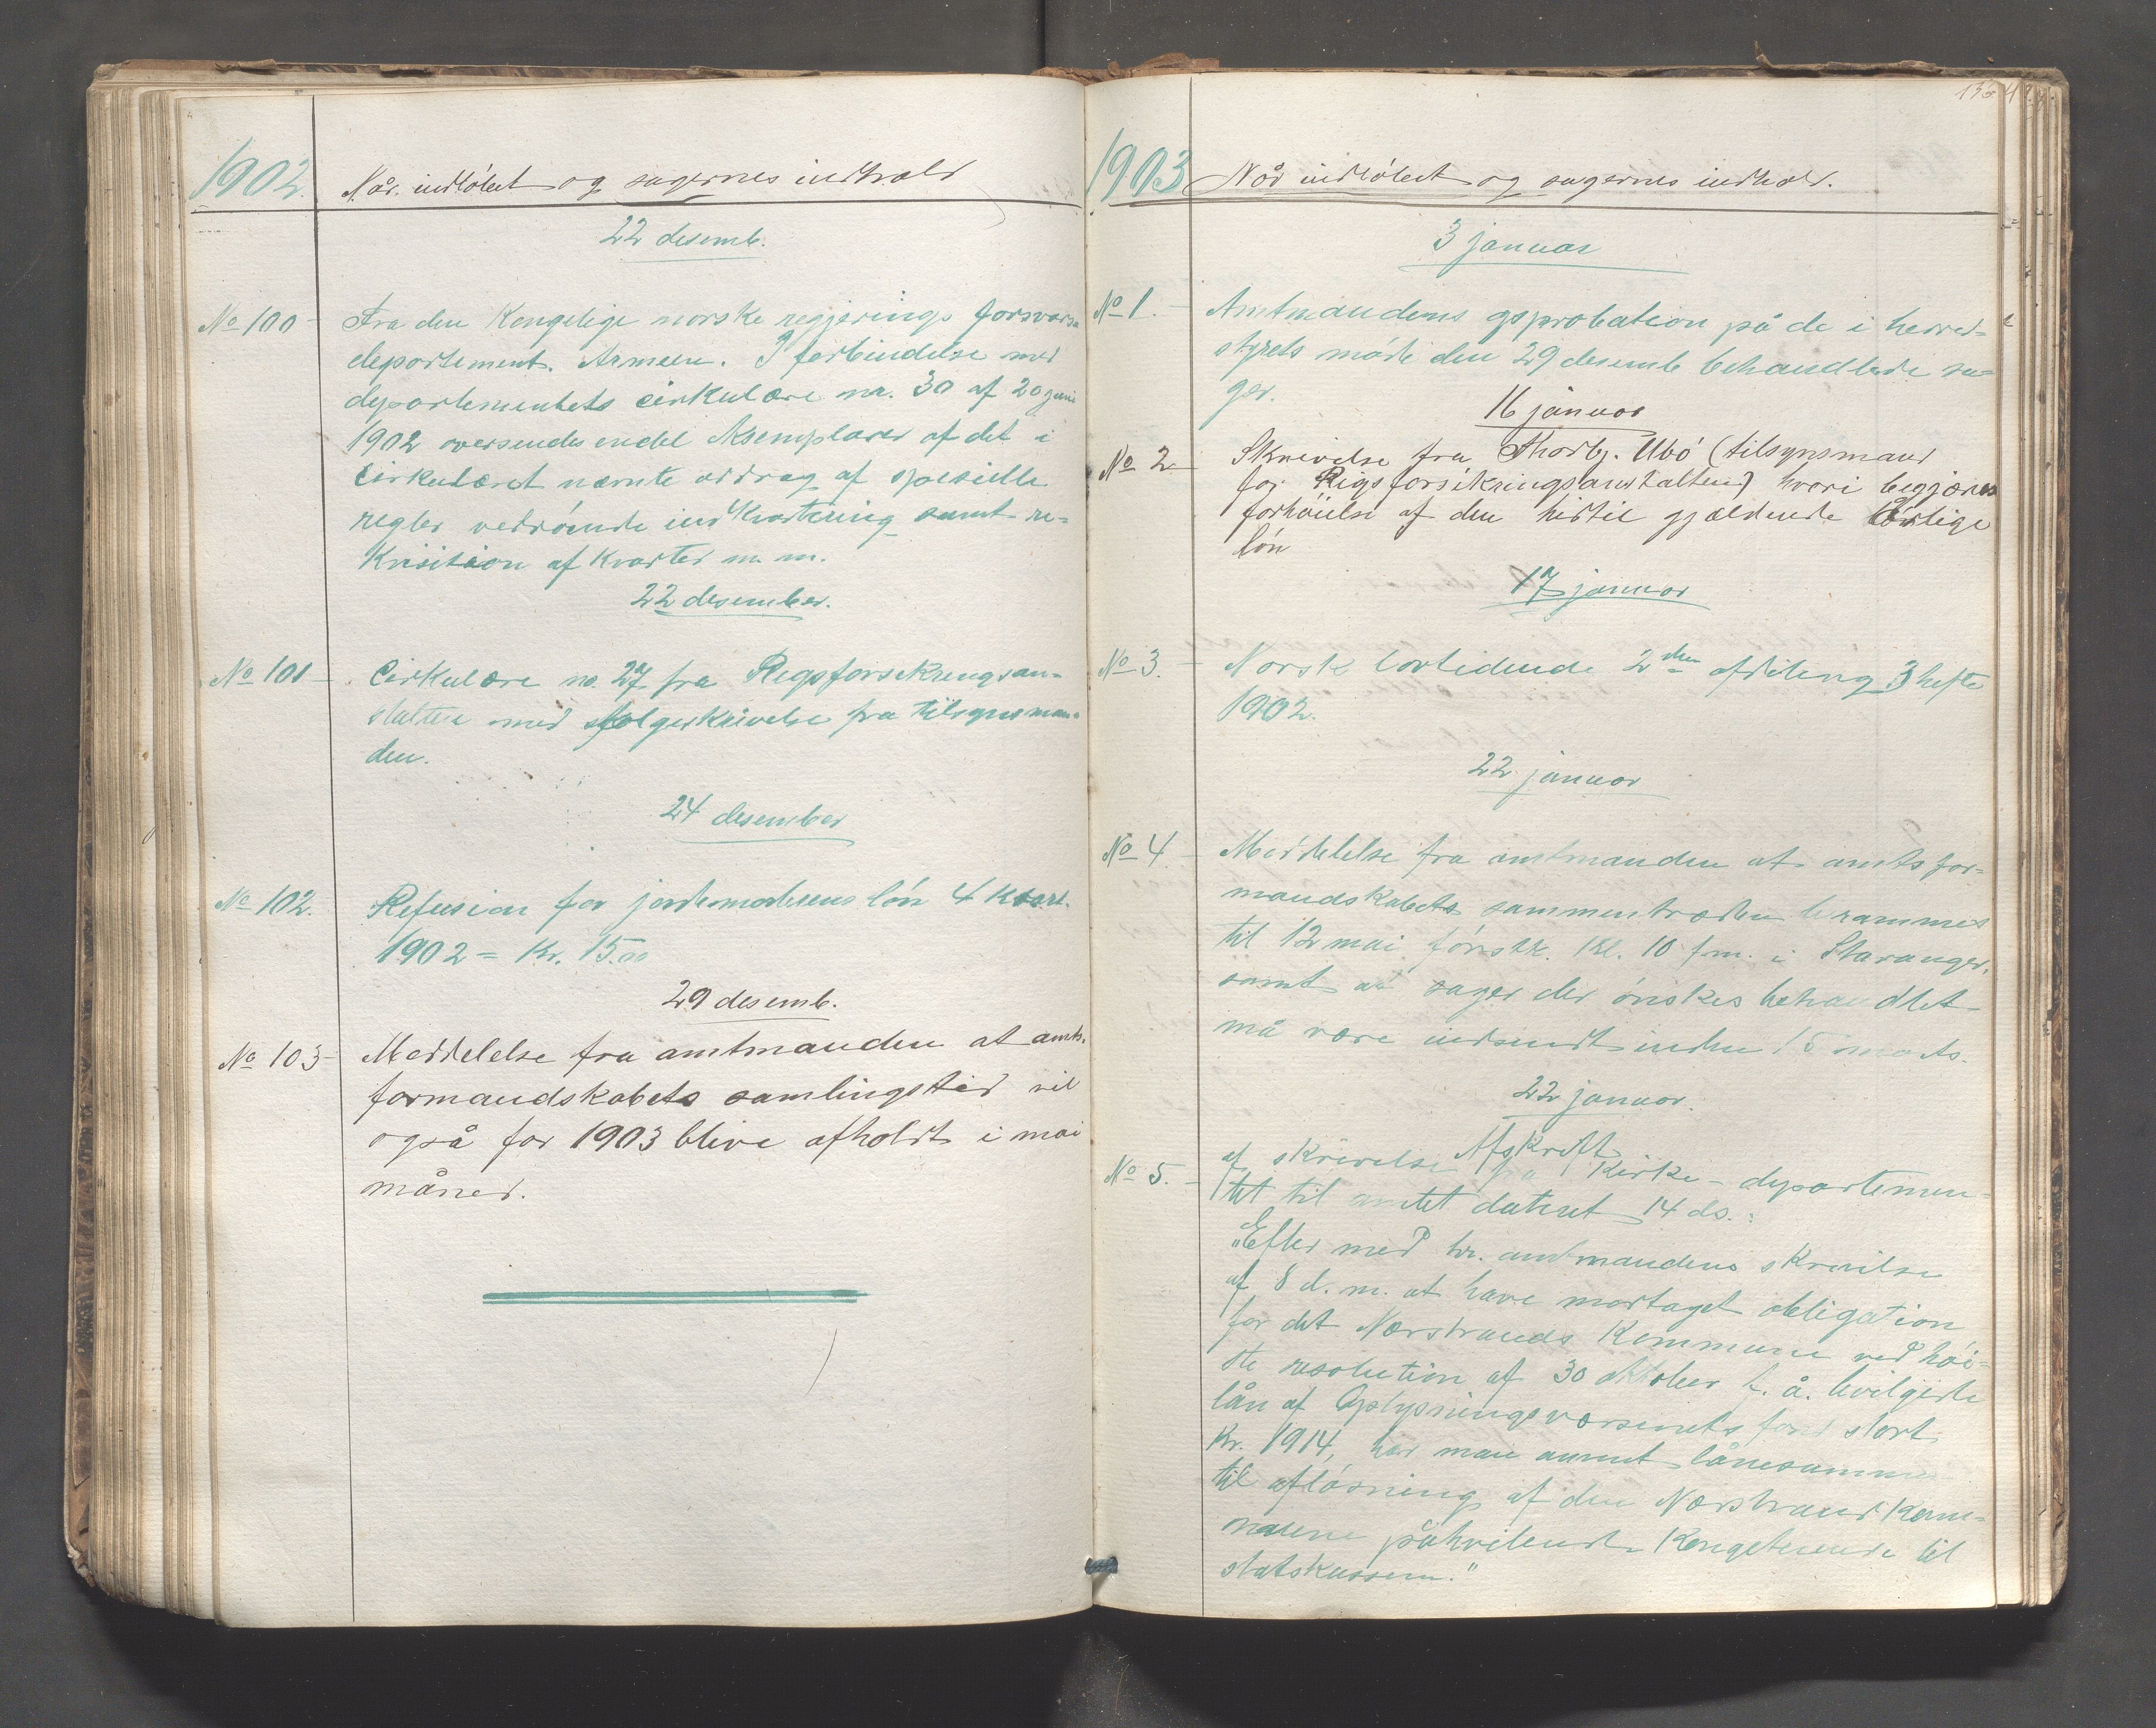 1902. Når indløbet og sagernes indhold
22 desemb.
No 100 Fra den Kongelige norske regjerings forsvars
departement. Armeen. I forbindelse med
departementets cirkulære nr. 30 af 20 juni
1902 oversendes endel eksemplarer af det i
cirkulæret nævnte uddrag af spesielle
regler vedrørende indkvartering samt re-
kvisition af kvarter m. m.
22 desember.
No 101 Cirkulære no. 27 fra Rigsforsikringsan-
stalten med følgeskrivelse fra tilsynsman-
den.
24 desember
No 102. Refusion for jordemoderens løn 4 kvart.
1902 = Kr. 15.00
29 desemb.
No 103 Meddelelse fra amtmanden at amts-
formandskabets samlingstid vil
også for 1903 blive afholdt i mai
måned.
1903 Når indløbet og sagernes indhold.
3 januar
No 1. Amtmandens approbation på de i herred-
styrets møde den 29 desemb behandlede sa-
ger.
16 januar
No 2 Skrivelse fra Thorbj. Ubø (tilsynsmand
for Rigsforsikringsanstalten) hvori begjæres
forhøielse af den hidtil gjældende årlige
løn
17 januar
No 3. Norsk lovtidende 2den afdeling 3 hefte
1902.
22 januar
No 4 Meddelelse fra amtmanden at amtsfor-
mandskabets sammentræden berammes
til 12 mai førstk. kl. 10 fm. i Stavanger,
samt at sager der ønskes behandlet
må være indsendt inden 15 marts.
22 januar.
Afskrift
No 5. af skrivelse fra Kirke-departemen-
tet til amtet dateret 14 ds.:
"Efter med hr. amtmandens skrivelse
af 8 d. m. at have modtaget obligation
for det Nærstrands Kommune ved høi-
ste resolution af 30 oktober f. å. bevilgede
lån af Oplysningsvæsenets fond stort
Kr. 1914, har man anvist lånesummen
til afløsning af den Nærstrand Kom-
mune påhvilende Kongetiende til
statskassen."